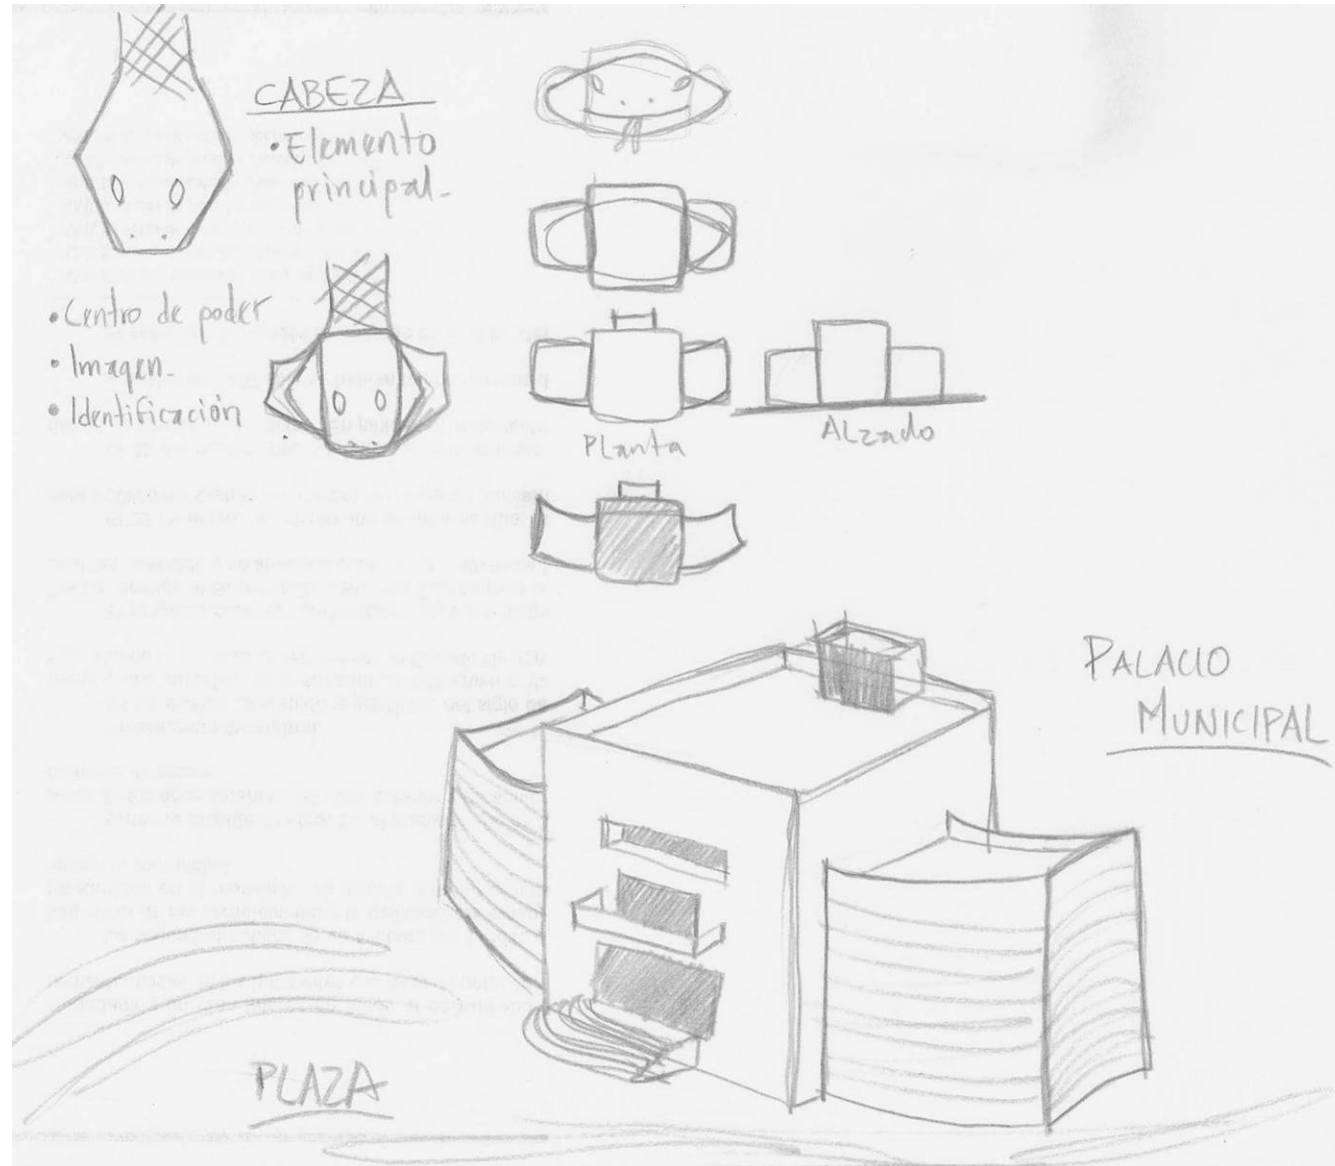 CABEZA
• Elemento
principal.
• Centro de poder
• Imagen.
• Identificación
Planta
Alzado
PALACIO
MUNICIPAL
PLAZA